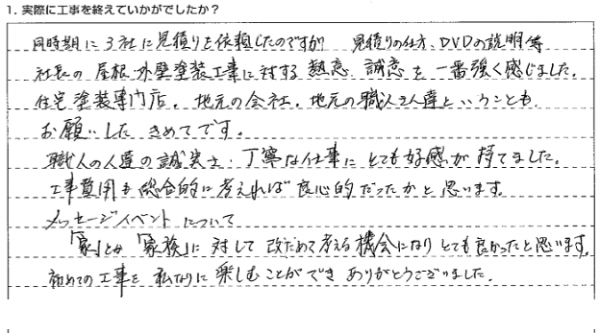 1. 実際に工事を終えていかがでしたか？
同時期に3社に見積りを依頼したのですが 見積りの仕方、DVDの説明等
社長の屋根・外壁塗装工事に対する熱意 誠意を一番強く感じました。
住宅塗装専門店、地元の会社、地元の職人さん達ということも
お願いした きめてです。
職人の人達の誠実さ・丁寧な仕事にとても好感が持てました。
工事費用も総合的に考えれば良心的だったかと思います。
メッセージイベントについて
「家」とか「家族」に対して改ためて考える機会になりとても良かったと思います。
初めての工事を私なりに楽しむことができ ありがとうございました。